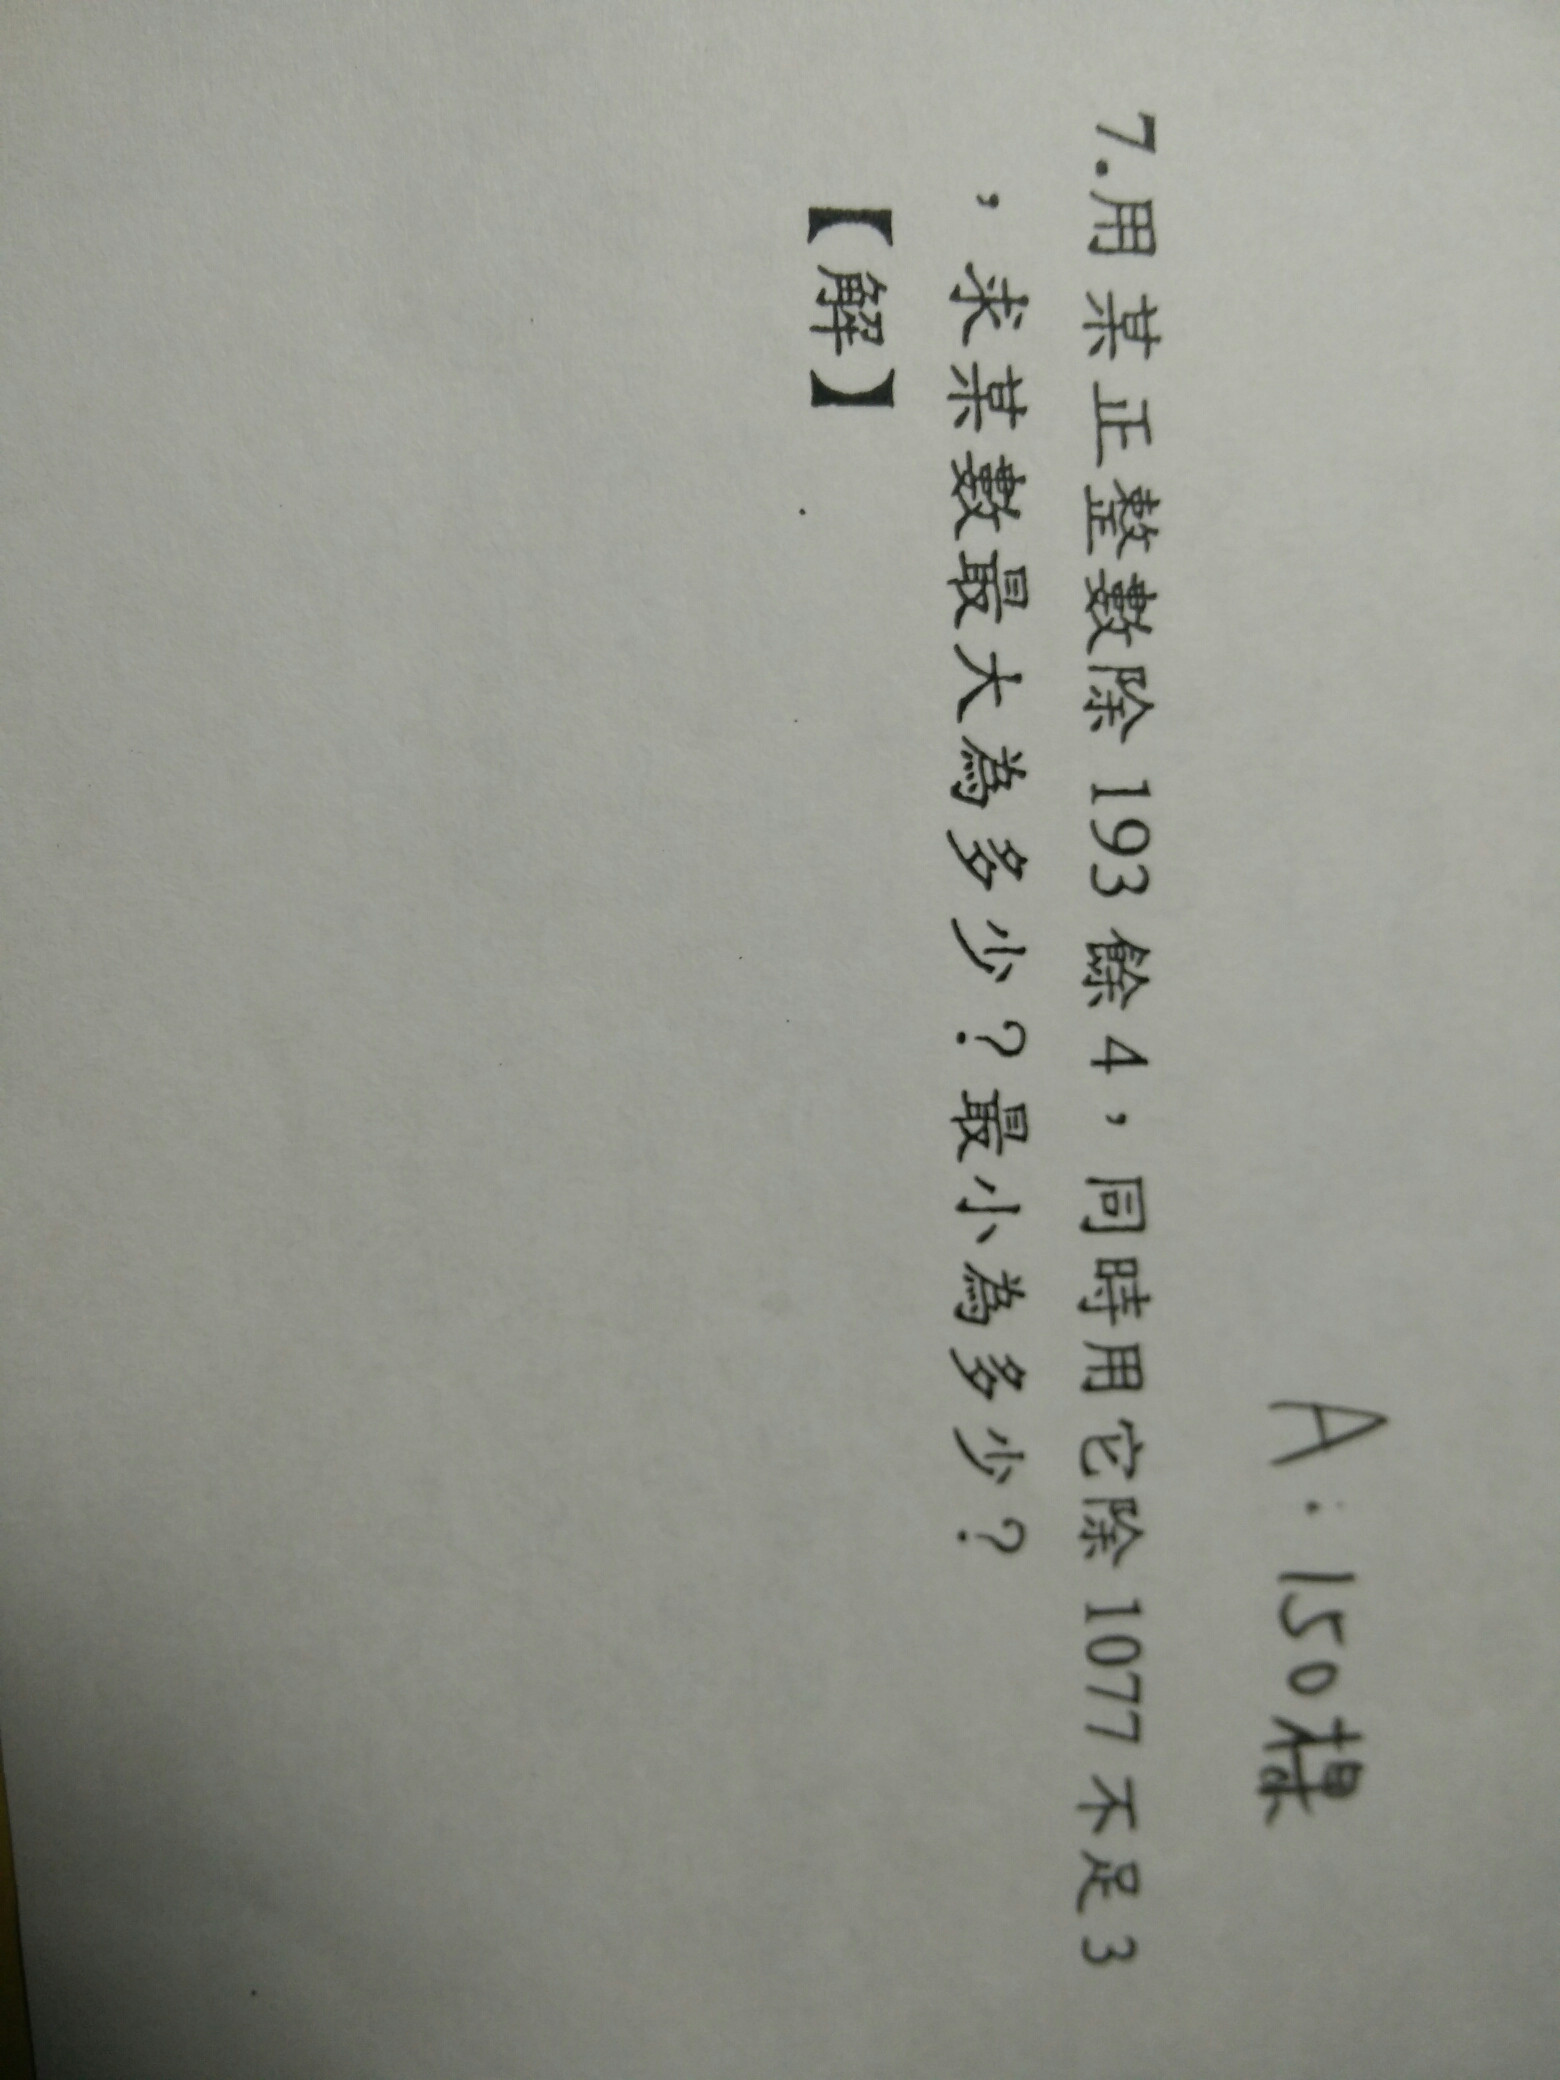 A:150棵
7.用某正整數除193餘4,同時用它除1077不足3
,求某數最大為多少?最小為多少?
【解】